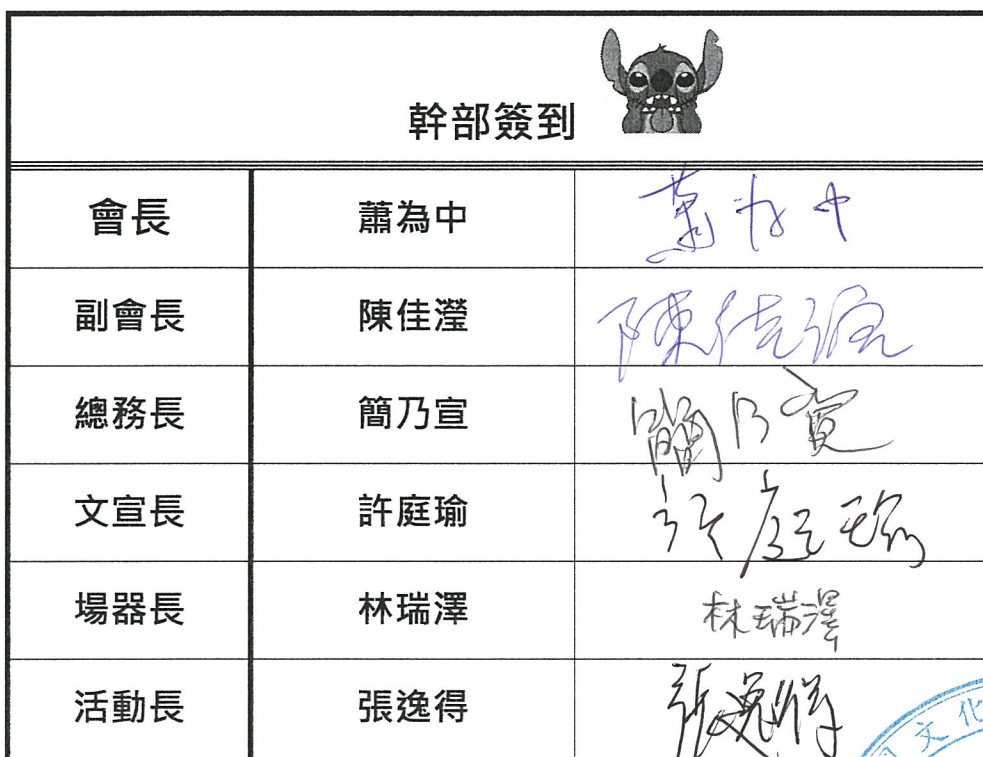 幹部簽到
會長 蕭為中 蕭為中
副會長 陳佳瀅 陳佳瀅
總務長 簡乃宣 簡乃宣
文宣長 許庭瑜 許庭瑜
場器長 林瑞澤 林瑞澤
活動長 張逸得 張逸得
文化